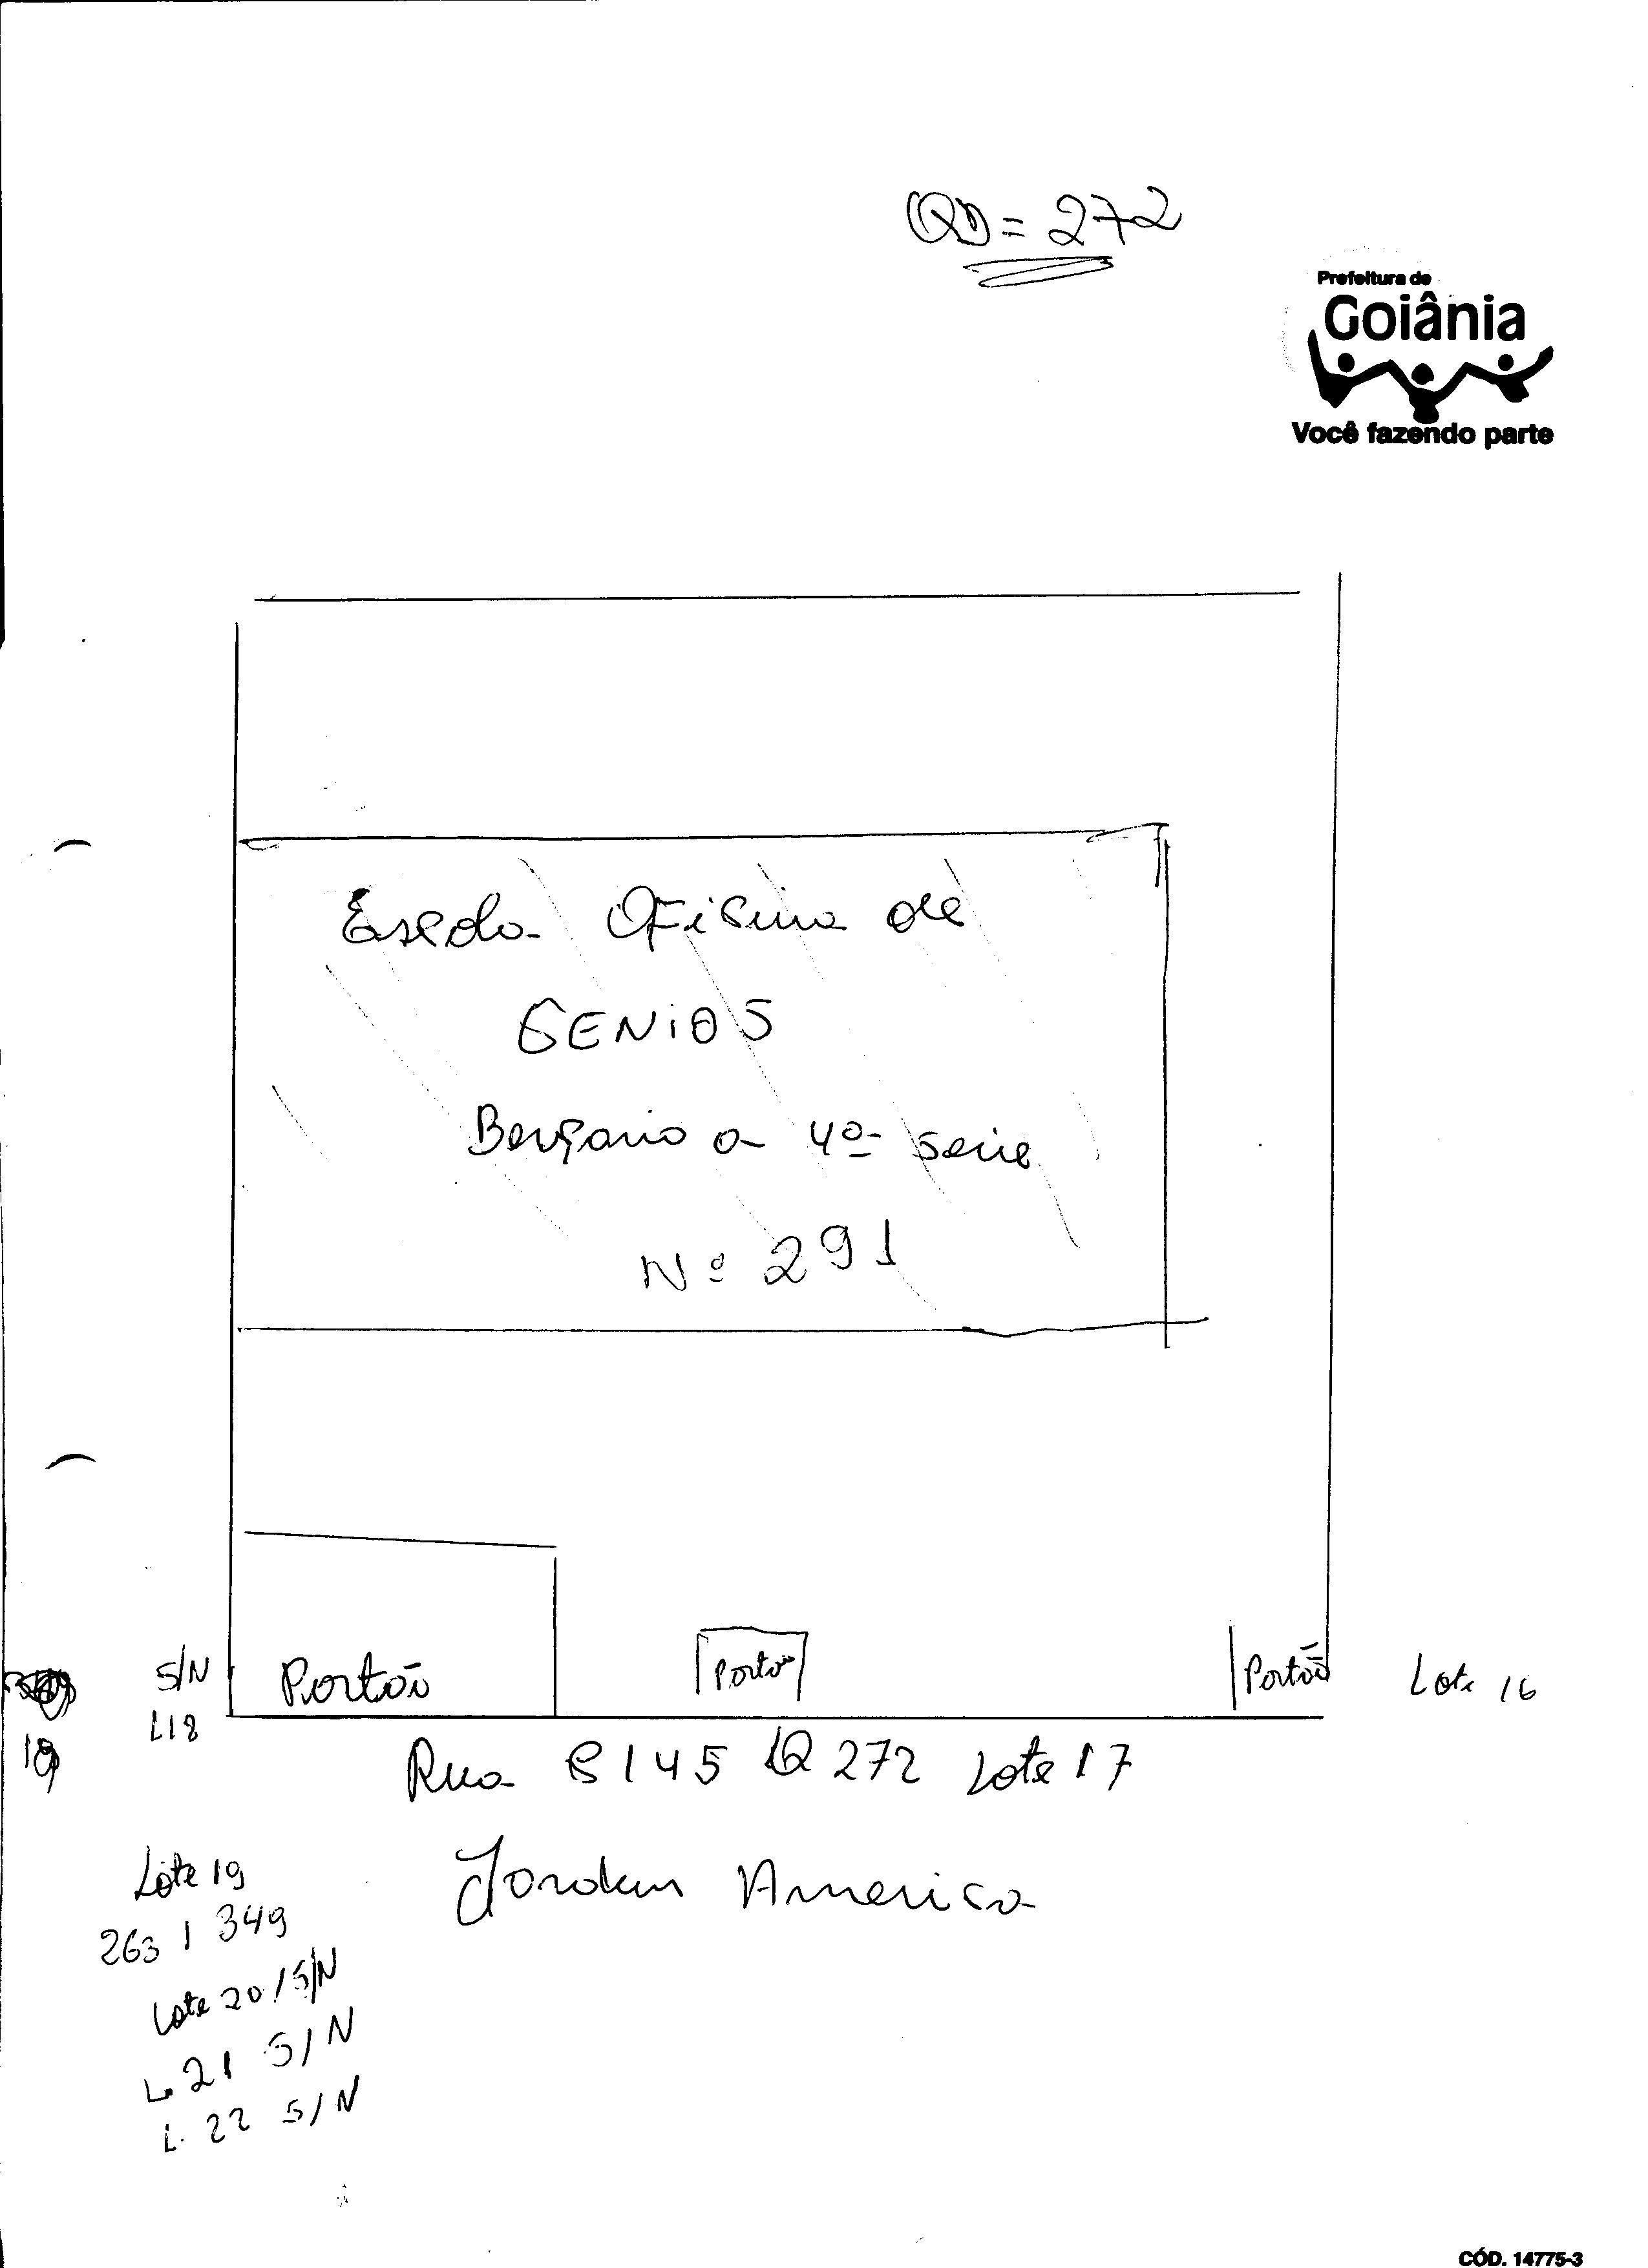 QD = 272
Prefeitura de
Goiânia
Você fazendo parte
Escola Oficina de
GENIOS
Berçario a 4ª serie
Nº 291
S/N
L18
19
Portão
Portão
Portão
Lote 16
Rua C145 Q 272 Lote 17
Jordim America
Lote 19
263 / 349
Lote 20 / S/N
L. 21 S/N
L. 22 S/N
CÓD. 14775-3